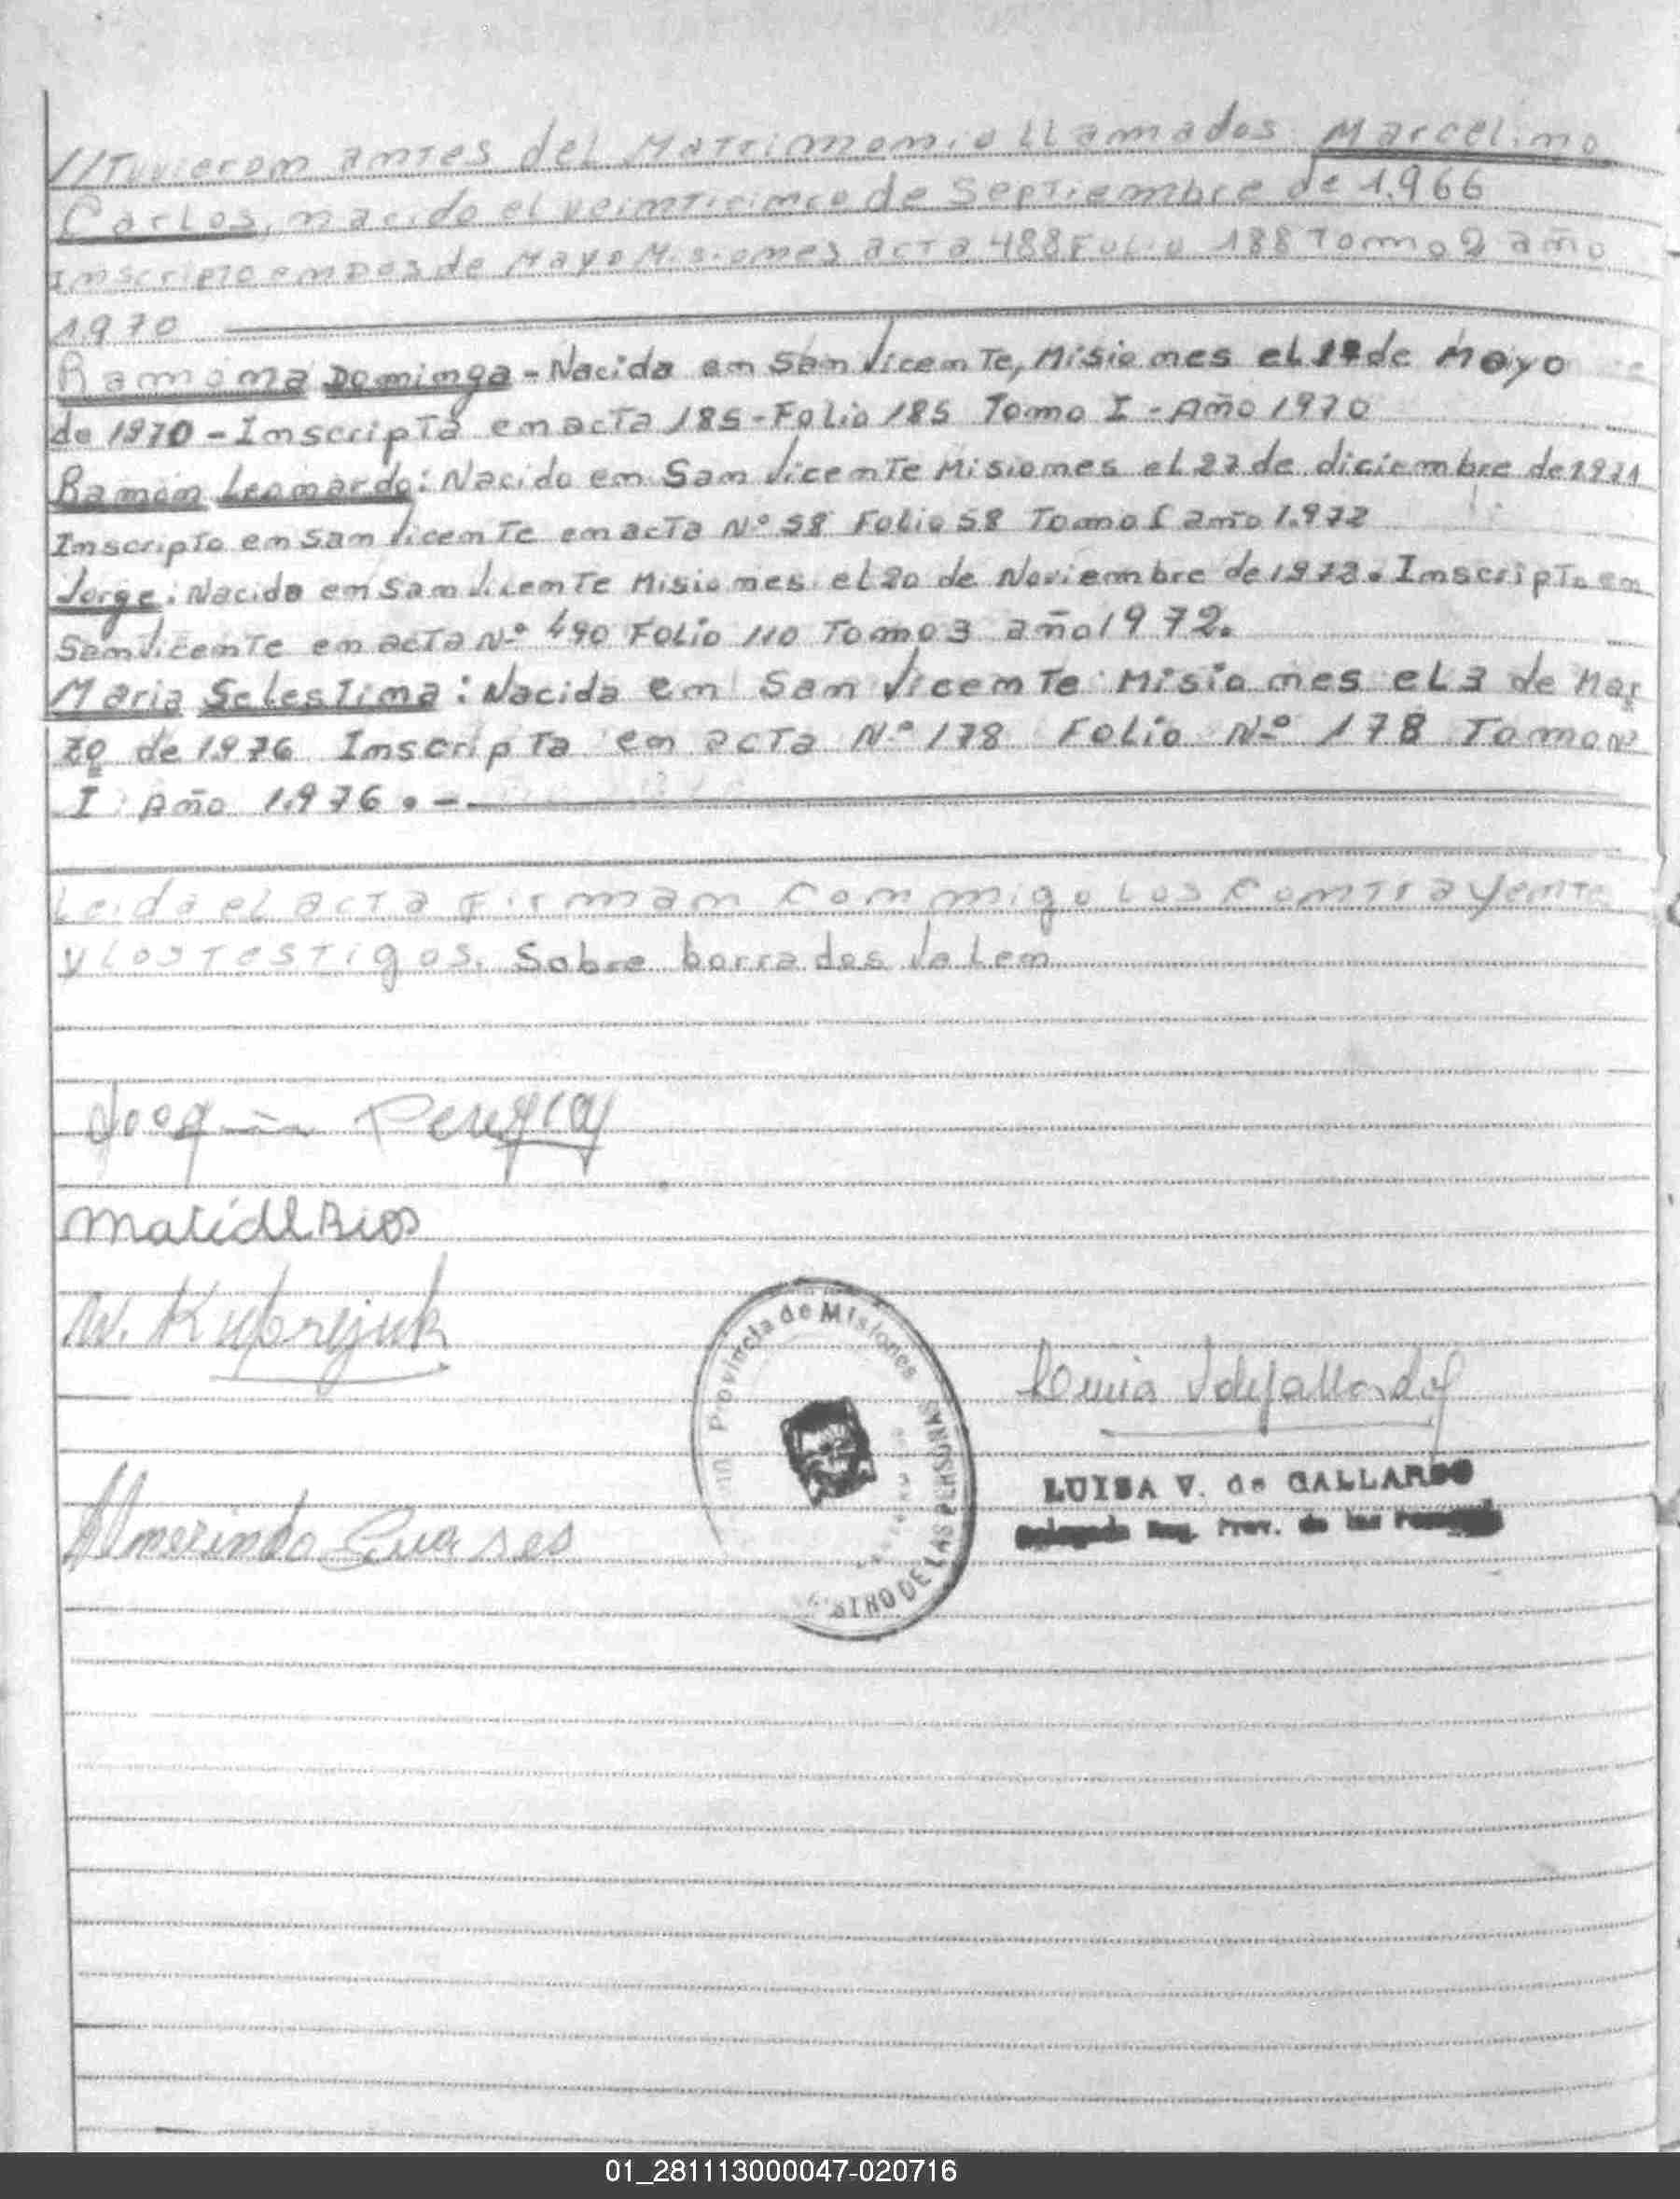 //Tuvieron antes del Matrimonio llamados Marcelino
Carlos, nacido el veinticinco de Septiembre de 1.966
Inscripto en Dos de Mayo Misiones acta 488 Folio 188 Tomo 2 año
1.970
Ramona Dominga - Nacida en San Vicente, Misiones el de Mayo
de 1970 - Inscripta en acta 185 - Folio 185 Tomo I - Año 1970
Ramón Leonardo: Nacido en San Vicente Misiones el 27 de diciembre de 1971
Inscripto en San Vicente en acta Nº 58 Folio 58 Tomo I año 1.972
Jorge: Nacido en San Vicente Misiones el 20 de Noviembre de 1972. Inscripto en
San Vicente en acta Nº 490 Folio 110 Tomo 3 año 1972.
Maria Selestina: Nacida en San Vicente Misiones el 3 de Mar
zo de 1.976 Inscripta en acta Nº 178 Folio Nº 178 Tomo Nº
I Año 1.976.-
Leida el acta firman conmigo los contrayente
y los testigos. Sobre borrados Valen
Joaquin
Matidl Rios
W. Kuprejuk
Provincia de Misiones
DE LAS PERSONAS
LUISA V. de GALLARDO
Reg. Prov. de las
Almerindo
01_281113000047-020716